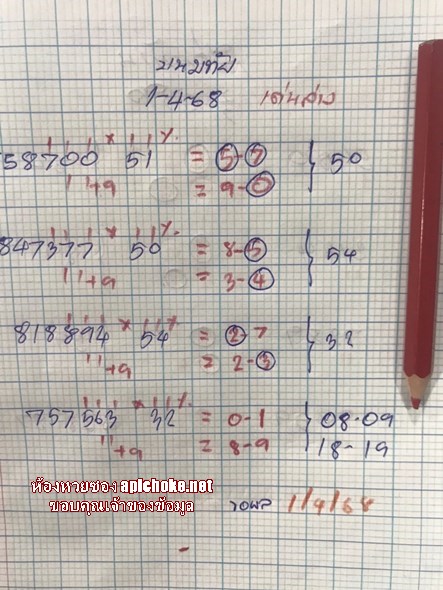 1-4-68 เด่นล่าง
58700 × 51 % = 5-7 } 50
11+9 = 9-0
847377 × 50 % = 8-5 } 54
11+9 = 3-4
818894 × 54 % = 2-7 } 32
11+9 = 2-3
757563 × 32 % = 0-1 } 08-09
11+9 = 8-9 18-19
ห้องหวยซอง apichoke.net
ขอบคุณเจ้าของข้อมูล
รอผล 1/4/68